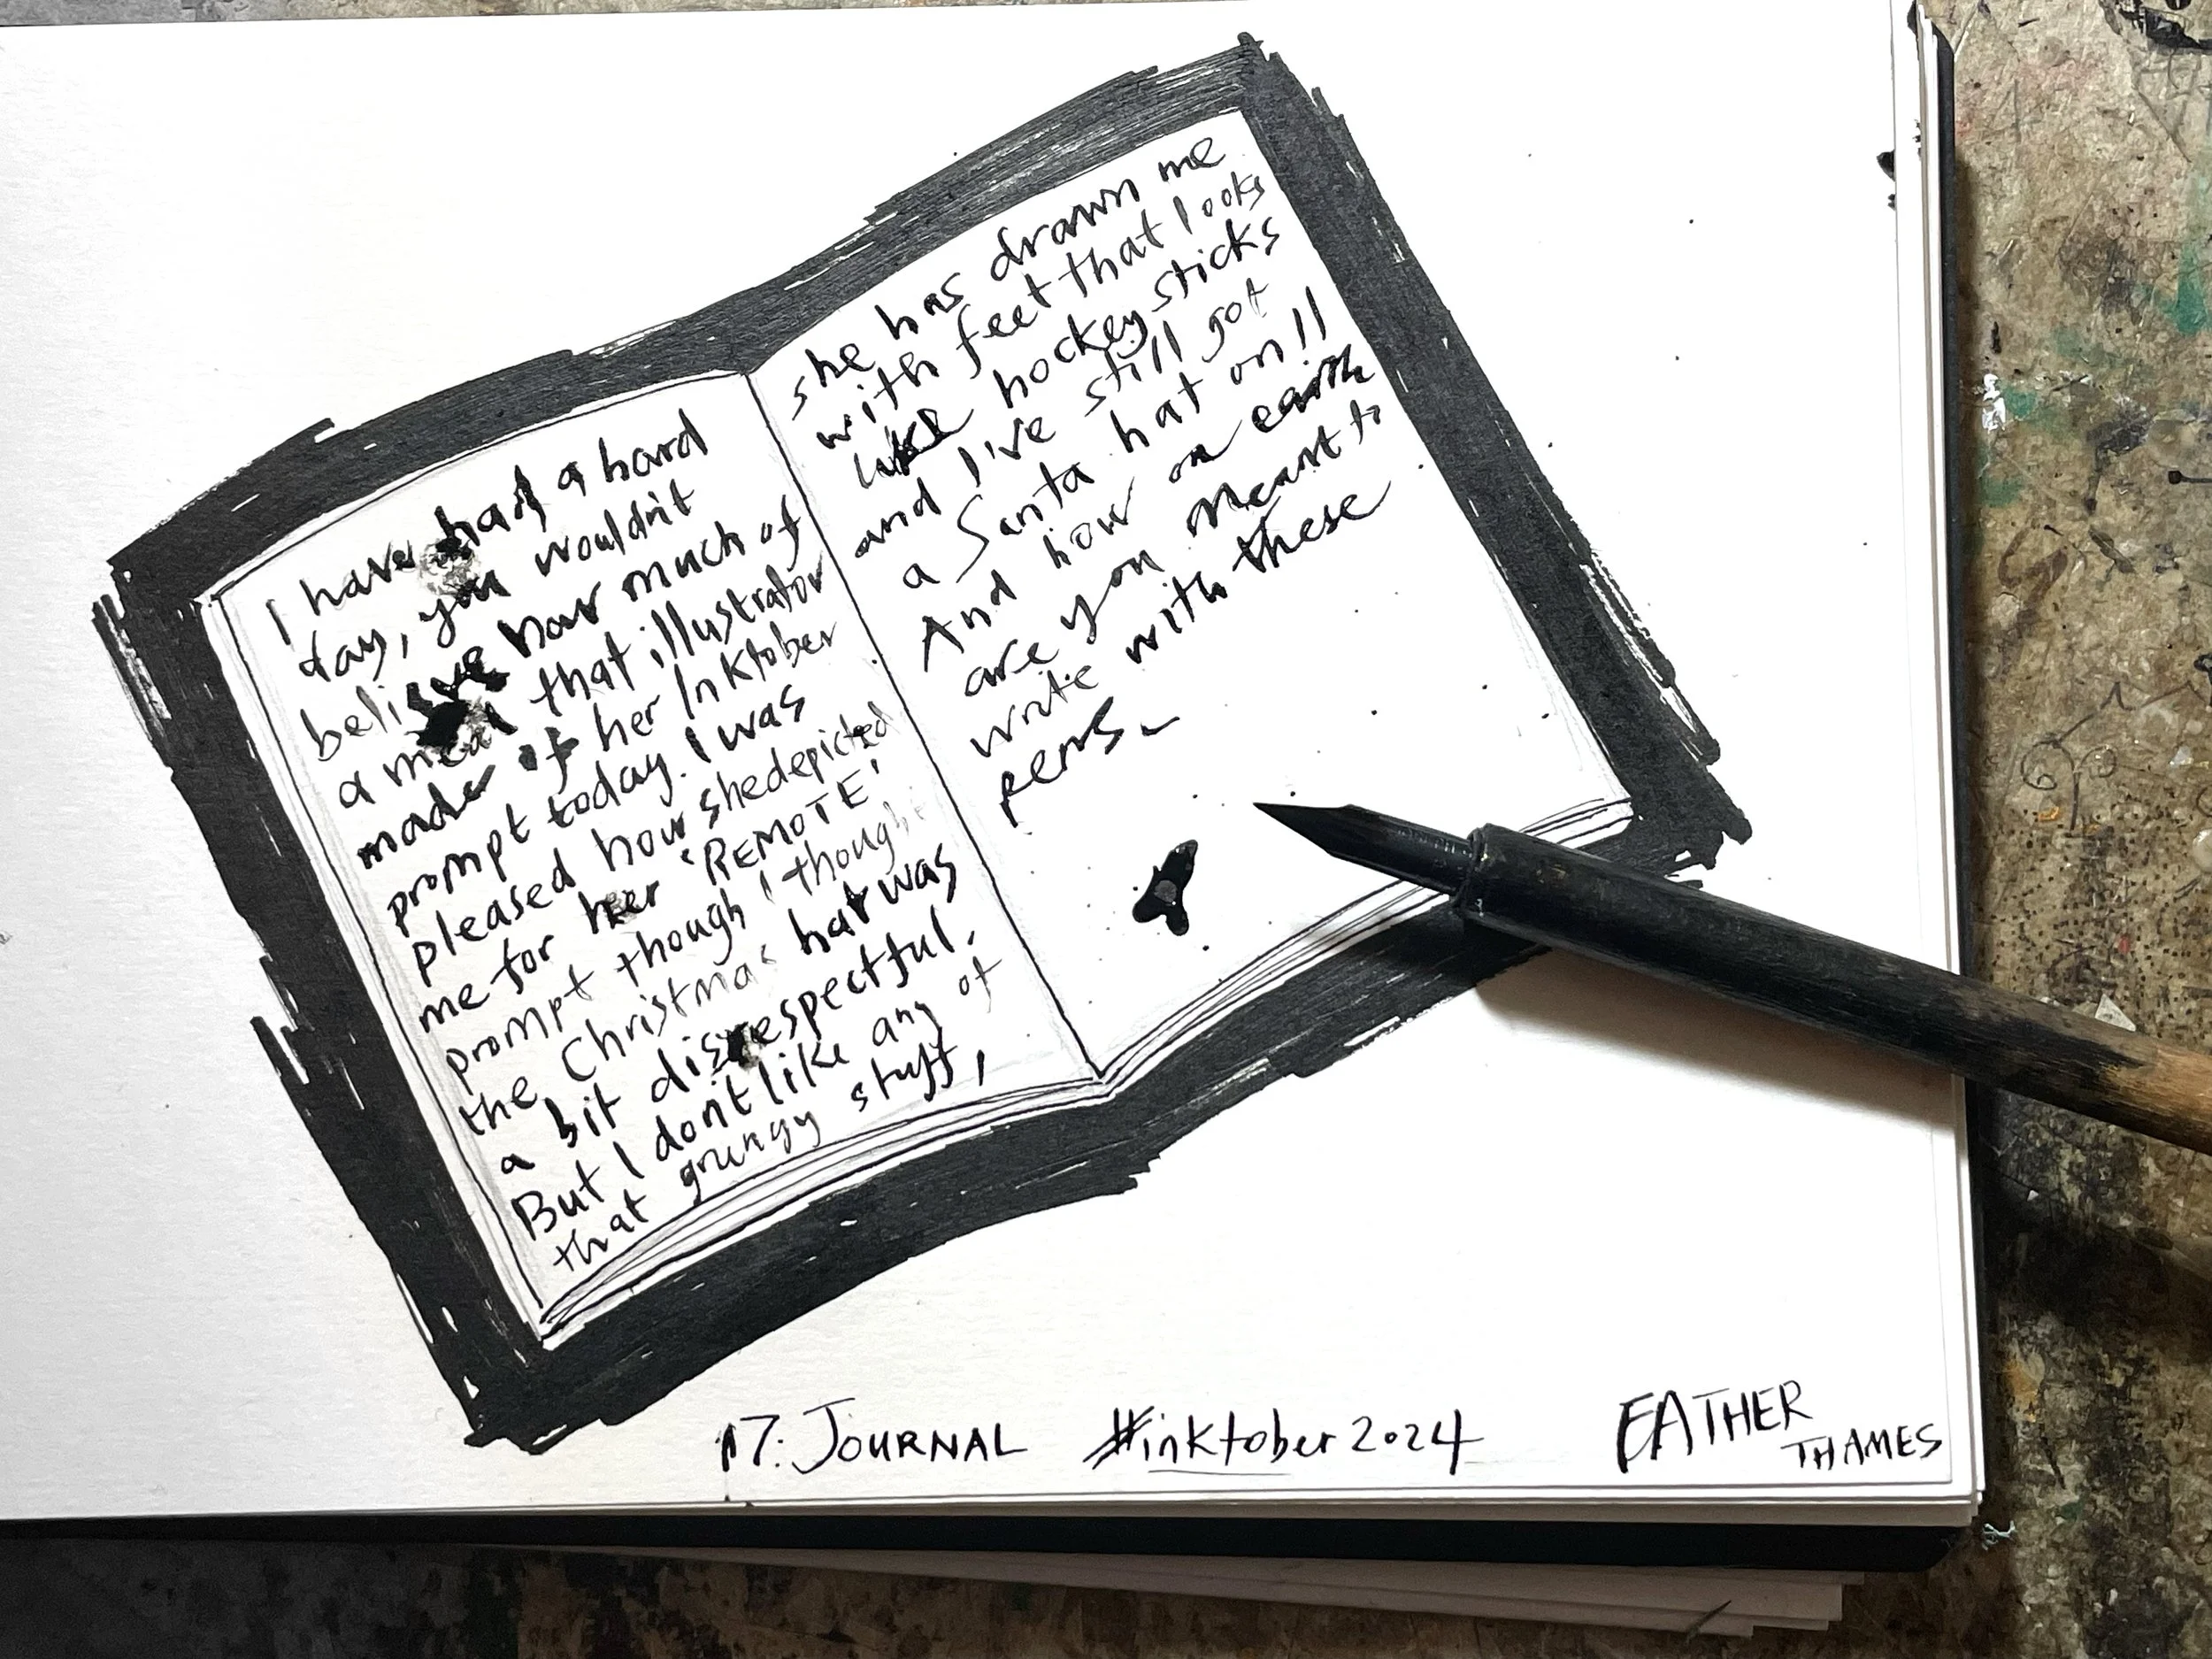 I have had a hard
day, you wouldn't
believe how much of
a meal that illustrator
made of her Inktober
prompt today. I was
pleased how she depicted
me for her 'REMOTE'
prompt though I though
the Christmas hat was
a bit disrespectful.
But I don't like any of
that grungy stuff,
she has drawn me
with feet that looks
like hockey sticks
and I've still got
a Santa hat on!!
And how on earth
are you meant to
write with these
pens -
17: JOURNAL #inktober2024 FATHER
THAMES